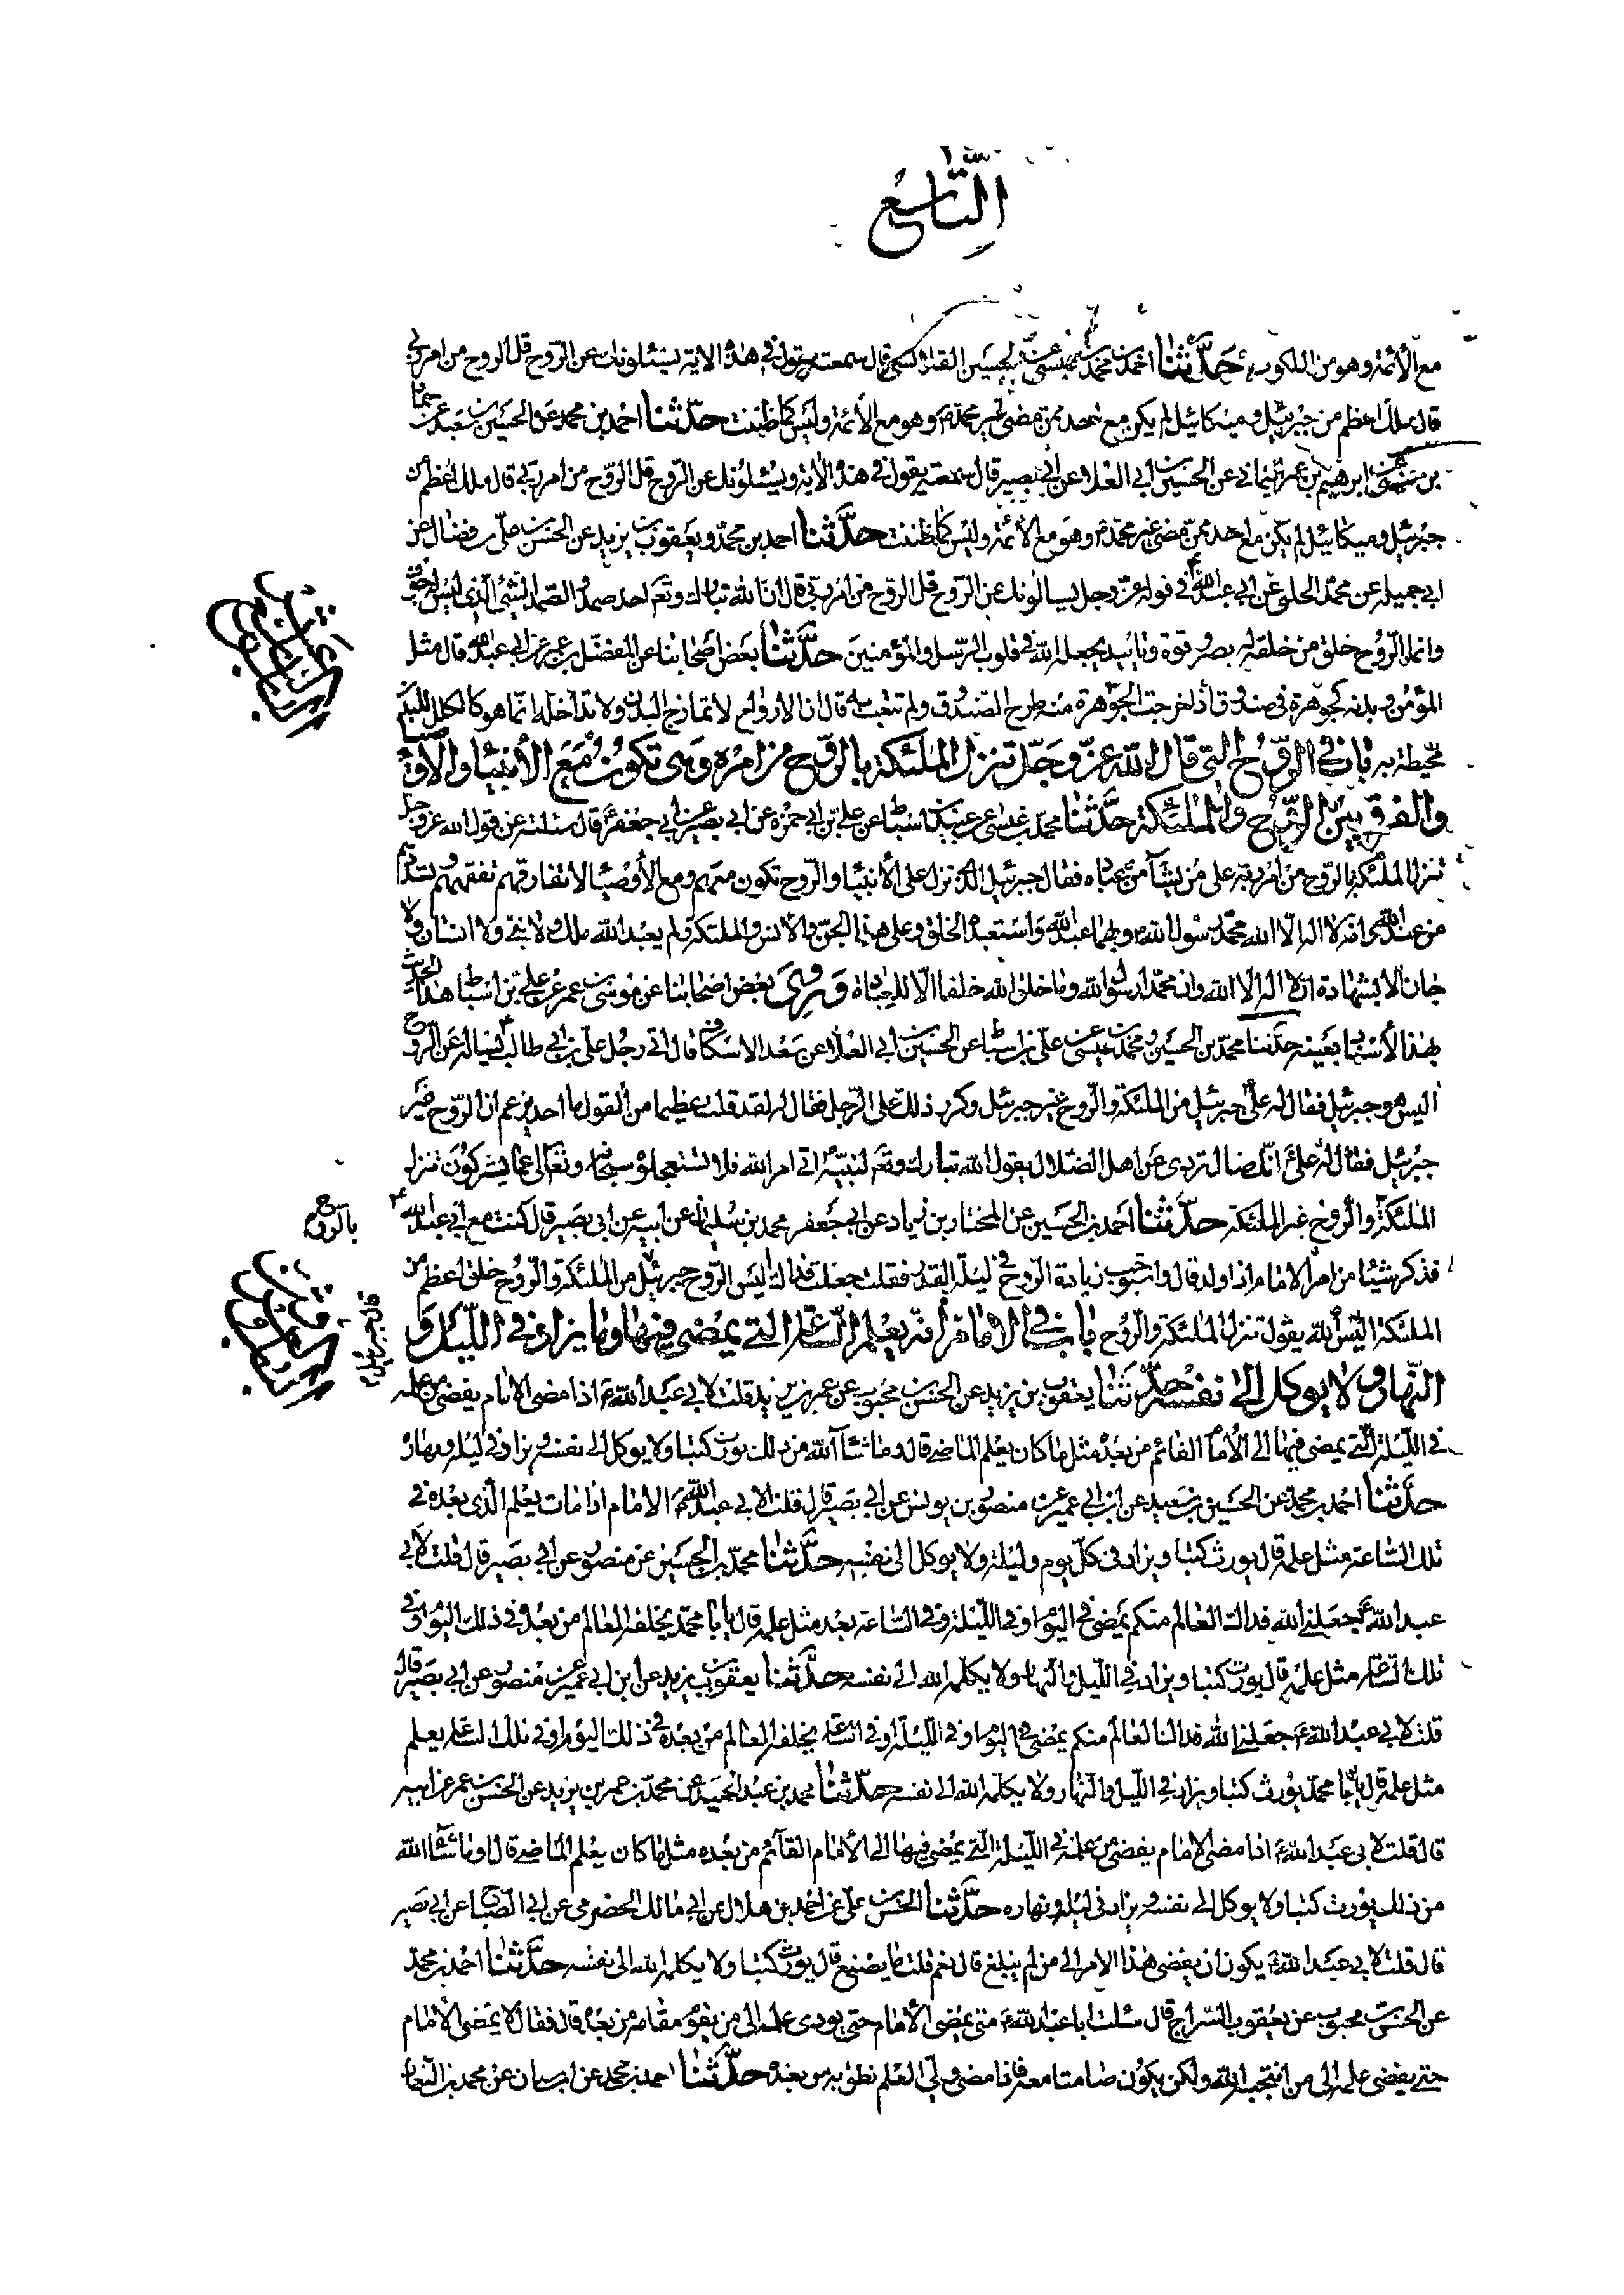 التاسع
مع الأئمة وهو من الملكوت حدثنا احمد بن محمد بن عيسى عن الحسين القلانسى قال سمعته يقول فى هذه الاية يسئلونك عن الروح قل الروح من امر ربى
قال ملك اعظم من جبرئيل وميكائيل لم يكن مع احد ممن مضى غير محمد وهو مع الأئمة وليس كما ظننت حدثنا احمد بن محمد عن الحسين بن سعيد عن حماد
بن عيسى عن ابرهيم بن عمر اليمانى عن الحسين بن ابى العلا عن ابى بصير قال سمعته يقول فى هذه الاية ويسئلونك عن الروح قل الروح من امر ربى قال ملك اعظم من
جبرئيل وميكائيل لم يكن مع احد ممن مضى غير محمد وهو مع الأئمة وليس كما ظننت حدثنا احمد بن محمد ويعقوب بن يزيد عن الحسن بن على بن فضال عن
ابى جميلة عن محمد الحلبى عن ابى عبد الله فى قوله عز وجل يسالونك عن الروح قل الروح من امر ربى قال ان الله تبارك وتع احد صمد والصمد الشئ الذى ليس له جوف
وانما الروح خلق من خلقه له بصر وقوة وتائيد يجعله الله فى قلوب الرسل والمؤمنين حدثنا بعض اصحابنا عن المفضل بن عمر عن ابى عبد الله قال مثل
المؤمن وبدنه كجوهرة فى صندوق اذا خرجت الجوهرة منه طرح الصندوق ولم تتعب به قال ان الارواح لا تمازج البدن ولا تداخله انما هو كالكلل للبدن
محيطة به باب فى الروح التى قال الله عز وجل تنزل الملئكة بالروح من امره وهى تكون مع الأنبيا والأوصيا
والفرق بين الروح والملئكة حدثنا محمد بن عيسى عن على بن اسباط عن على بن ابى حمزة عن ابى بصير عن ابى جعفر قال سئلته عن قول الله عز وجل
تنزل الملئكة بالروح من امر ربه على من يشآ من عباده فقال جبرئيل الذى نزل على الأنبيا والروح تكون معهم ومع الأوصيا لا تفارقهم تفقههم وتسددهم
من عند الله وانه لا اله الا الله محمد رسول الله وبهما عبد الله واستعبد الخلق وعلى هذا الجن والانس والملئكة ولم يعبد الله ملك ولا نبى ولا انسان ولا
جان الا بشهادة ان لا اله الا الله وان محمدا رسول الله وما خلق الله خلقا الا للعبادة وروى بعض اصحابنا عن موسى بن عمر عن على بن اسباط هذا الحديث
بهذا الأسناد بعينه حدثنا محمد بن الحسين ومحمد بن عيسى عن على بن اسباط عن الحسين بن ابى العلا عن سعد الاسكاف قال اتى رجل على بن ابى طالب يساله عن الروح
اليس هو جبرئيل فقال له على جبرئيل من الملئكة والروح غير جبرئيل وكرر ذلك على الرجل فقال له لقد قلت عظيما من القول ما احد يزعم ان الروح غير
جبرئيل فقال له على انك ضال تروى عن اهل الضلال يقول الله تبارك وتع لنبيه اتى امر الله فلا تستعجلوه سبحانه وتعالى عما يشركون تنزل
الملئكة والروح غير الملئكة حدثنا احمد بن الحسين عن المختار بن زياد عن ابى جعفر محمد بن سليمان عن ابيه عن ابى بصير قال كنت مع ابى عبد الله
بالروح
فذكر شيئا من امر الامام اذا ولد قال واستوجب زيادة الروح فى ليلة القدر فقلت جعلت فداك اليس الروح جبرئيل من الملئكة والروح خلق اعظم من
الملئكة اليس الله يقول تنزل الملئكة والروح باب فى الامام انه يعلم الساعة التى يمضى فيها وما يزاد فى الليل و
النهار ولا يوكل الى نفسه حدثنا يعقوب بن يزيد عن الحسن بن محبوب عن عمر بن يزيد قلت لابى عبد الله اذا مضى الامام يفضى من علمه
فى الليلة التى يمضى فيها الى الأمام القائم من بعده مثل ما كان يعلم الماضى قال وما شآ الله من ذلك يورث كتبا ولا يوكل الى نفسه ويزاد فى ليله ونهاره
حدثنا احمد بن محمد عن الحسين بن سعيد عن ابن ابى عمير عن منصور بن يونس عن ابى بصير قال قلت لابى عبد الله الامام اذا مات يعلم الذى بعده فى
تلك الساعة مثل علمه قال يورث كتبا ويزاد فى كل يوم وليلة ولا يوكل الى نفسه حدثنا محمد بن الحسين عن منصور عن ابى بصير قال قلت لابى
عبد الله جعلنى الله فداك العالم منكم يمضى فى اليوم او فى الليلة وفى الساعة بعد مثل علمه قال يابا محمد يخلفه العالم من بعد وفى ذلك اليوم او فى
تلك الساعة مثل علمه قال يورث كتبا ويزاد فى الليل والنهار ولا يكله الله الى نفسه حدثنا يعقوب بن يزيد عن ابن ابى عمير عن منصور عن ابى بصير قال
قلت لابى عبد الله جعلنى الله فداك العالم منكم يمضى فى اليوم او فى الليلة او فى الساعة يخلفه العالم من بعده فى ذلك اليوم او فى تلك الساعة يعلم
مثل علمه قال يابا محمد يورث كتبا ويزاد فى الليل والنهار ولا يكله الله الى نفسه حدثنا محمد بن عبد الحميد عن محمد بن عمر بن يزيد عن الحسن بن عمر عن ابيه
قال قلت لابى عبد الله اذا مضى الامام يفضى من علمه فى الليلة التى يمضى فيها الى الأمام القآئم من بعده مثل ما كان يعلم الماضى قال وما شآ الله
من ذلك يورث كتبا ولا يوكل الى نفسه ويزاد فى ليله ونهاره حدثنا الحسن بن على عن احمد بن هلال عن ابى مالك الحضرمى عن ابى الصباح عن ابى بصير
قال قلت لابى عبد الله يكون ان يفضى هذا الامر الى من لم يبلغ قال نعم قلت ما يصنع قال يورث كتبا ولا يكله الله الى نفسه حدثنا احمد بن محمد
عن الحسن بن محبوب عن يعقوب السراج قال سئلت ابا عبد الله متى يمضى الأمام حتى يودى علمه الى من يقوم مقامه من بعده قال فقال لا يمضى الأمام
حتى يفضى علمه الى من انتجبه الله ولكن يكون صامتا معه فاذا مضى ولى العلم نطق به من بعده حدثنا احمد بن محمد عن ابن سنان عن محمد بن النعمان